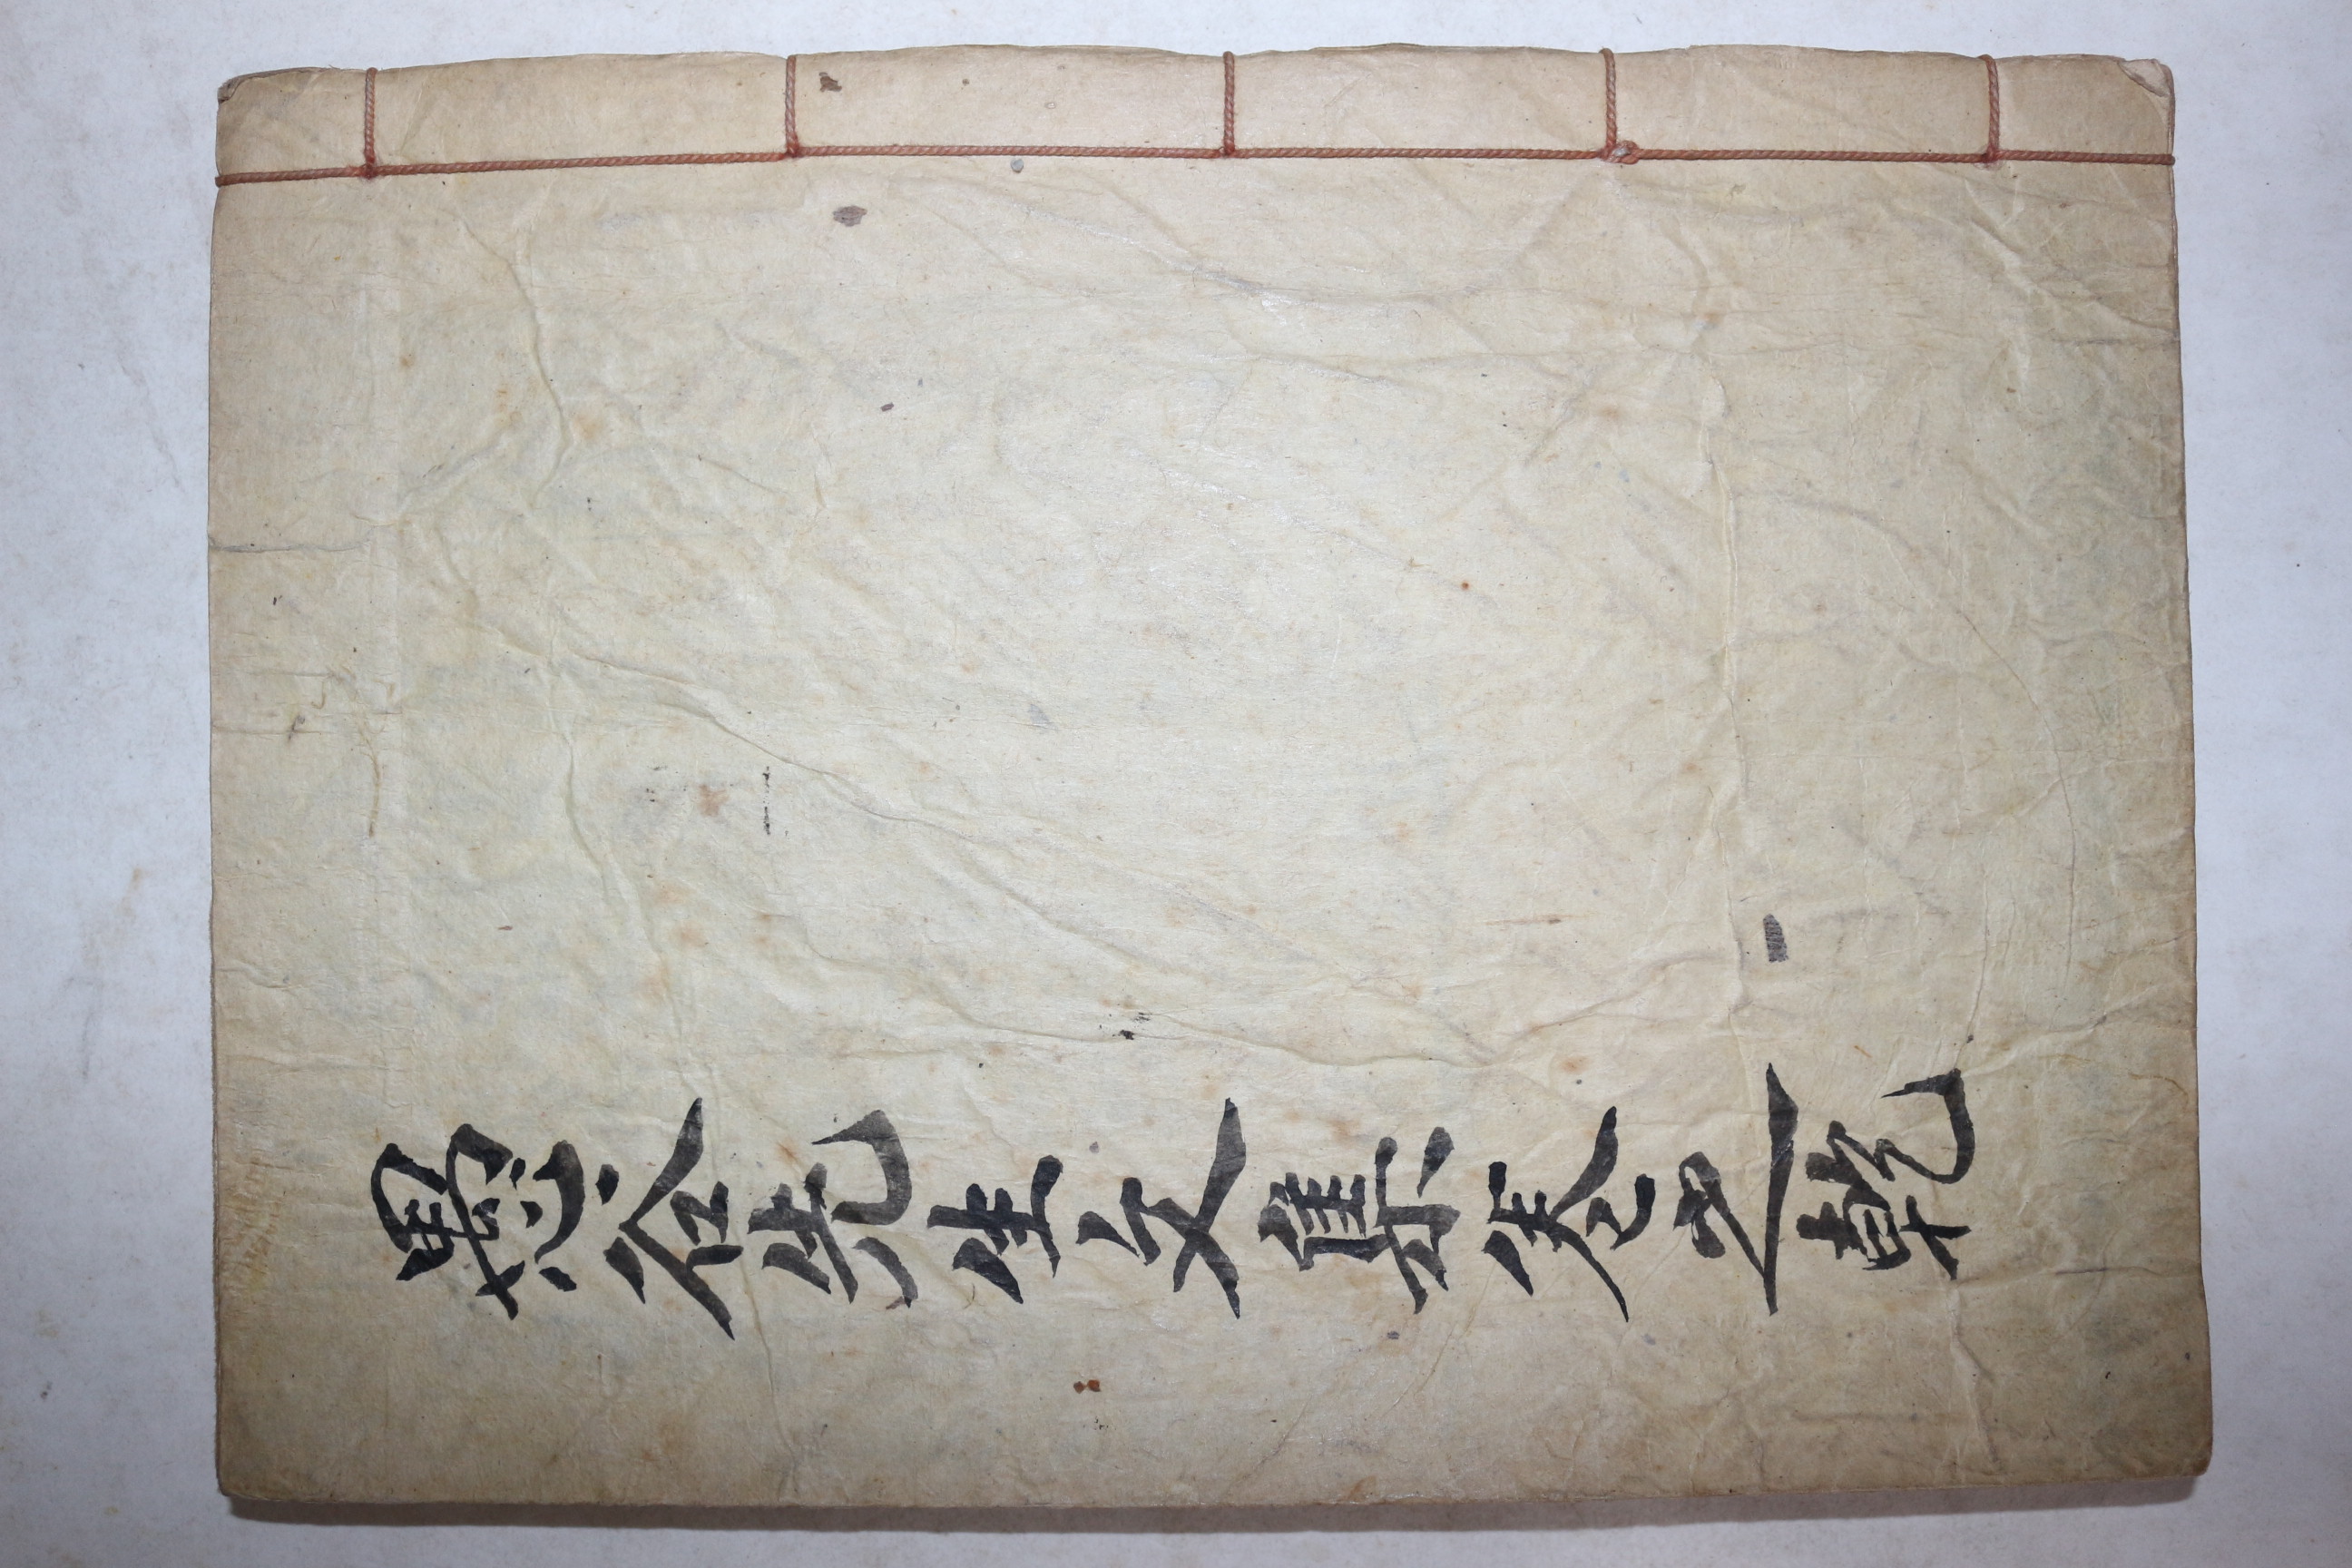 愚谷先生文集卷之乾